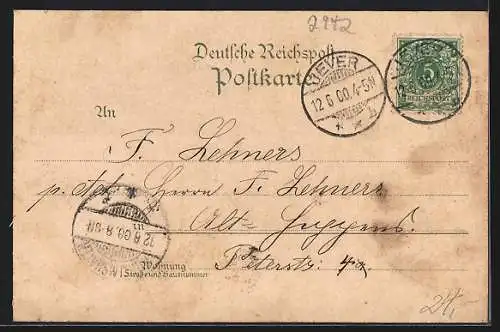 2942
Deutsche Reichspost
Postkarte
JEVER
12 6 00. 4-5N
* * b
JEVER
5
REICHSPOST
An
F. Lehners
p. Adr. Herrn F. Lehners
Alt-
Peterstr. 42
12 6 00. 8-9N
Wohnung
(Straße und Hausnummer)
24,-